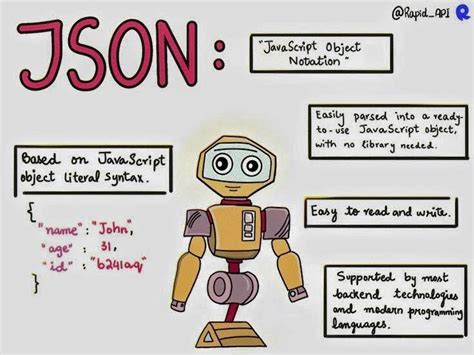 @Rapid_API
JSON:
"JavaScript Object
Notation"
Easily parsed into a ready-
to-use JavaScript object,
with no library needed.
Based on JavaScript
object literal syntax.
{
"name": "John",
"age" : 31,
"id" : "b241aq"
}
Easy to read and write.
Supported by most
backend technologies
and modern programming
languages.